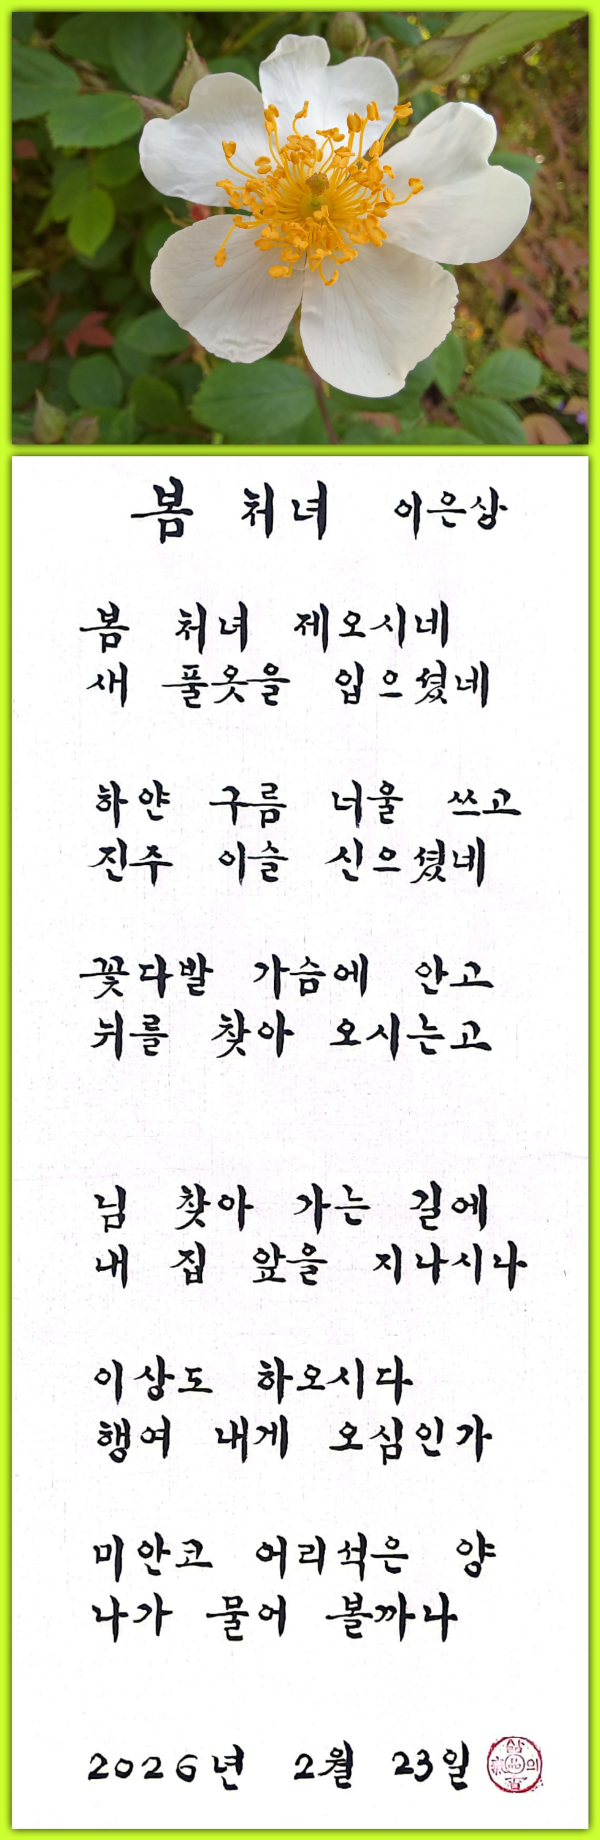 봄 처녀 이은상
봄 처녀 제오시네
새 풀옷을 입으셨네
하얀 구름 너울 쓰고
진주 이슬 신으셨네
꽃다발 가슴에 안고
뉘를 찾아 오시는고
님 찾아 가는 길에
내 집 앞을 지나시나
이상도 하오시다
행여 내게 오심인가
미안코 어리석은 양
나가 물어 볼까나
2026년 2월 23일